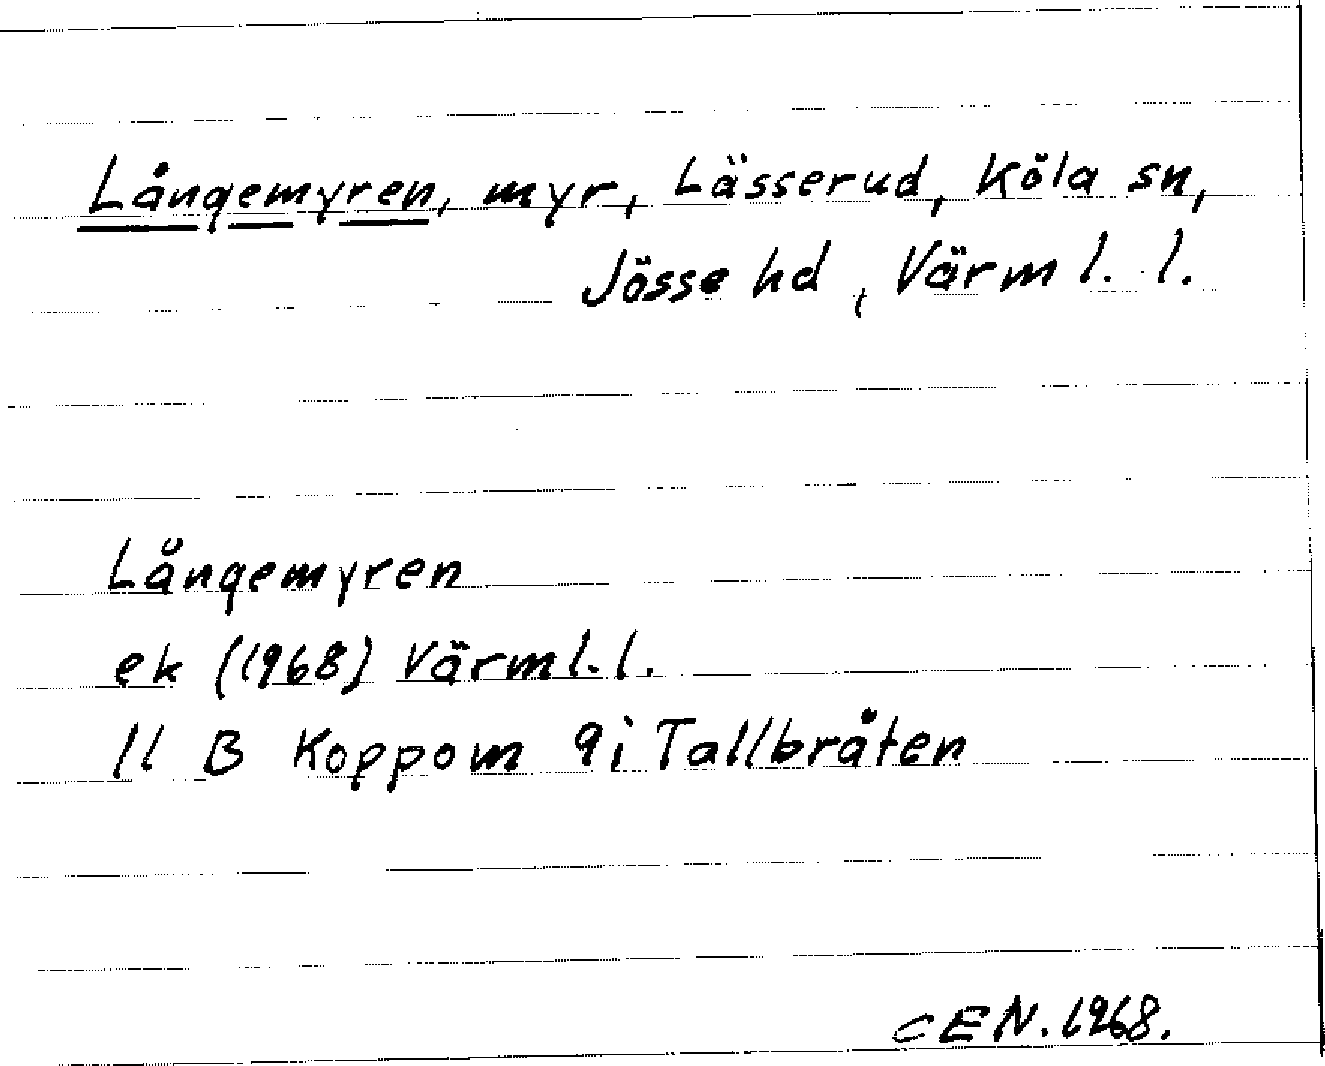 Långemyren, myr, Lässerud, Köla sn,
Jösse hd, Värml. l.
Långemyren
ek (1968) Värml. l.
11 B Koppom 9i Tallbråten
CEN. 1968.